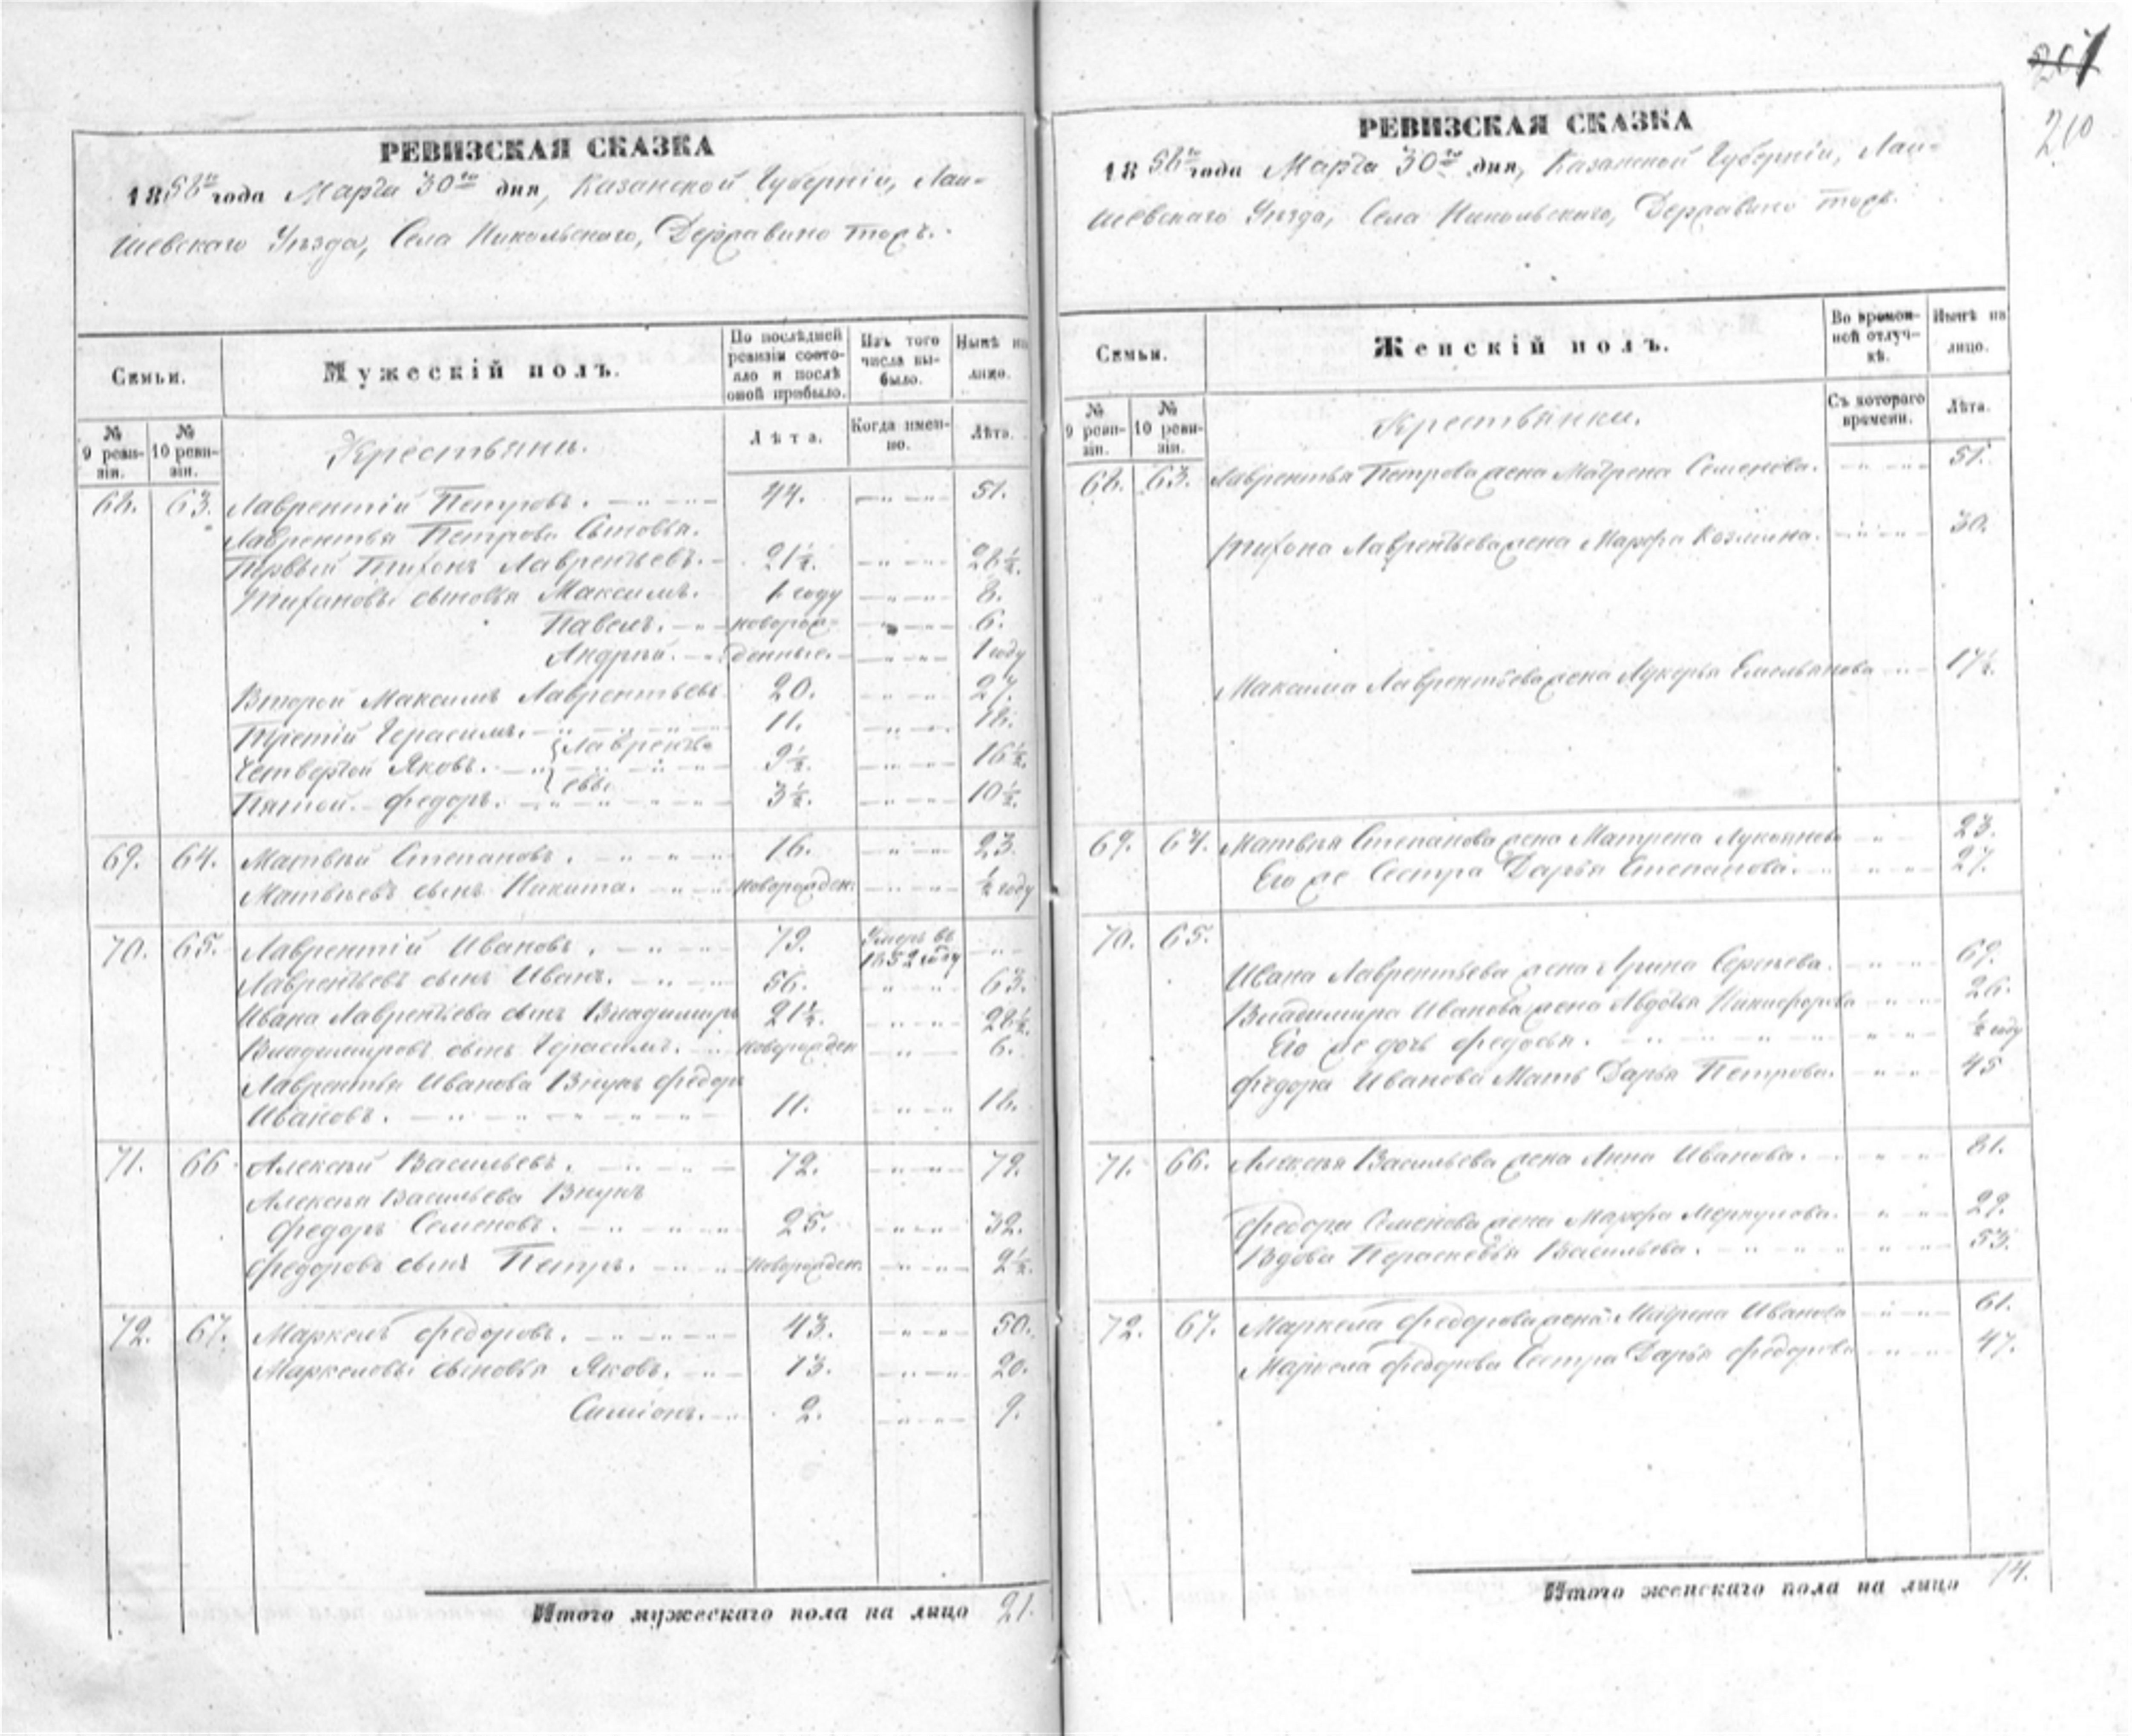 201
210
РЕВИЗСКАЯ СКАЗКА
1858го года Марта 30го дня, Казанской Губерніи, Лаи-
шевскаго Уѣзда, Села Никольскаго, Державино тожъ.
Семьи.
Мужескій полъ.
По послѣдней ревизіи состояло и послѣ оной прибыло.
Изъ того числа выбыло.
Нынѣ на лицо.
№ 9 ревизіи.
№ 10 ревизіи.
Крестьяне.
Лѣта.
Когда именно.
Лѣта.
68. 63. Лаврентій Петровъ. 44. 51.
Лаврентья Петрова Сыновья.
Первый Тихонъ Лаврентьевъ. 21½. 28½.
Тихоновы сыновья Максимъ. 1 году 8.
Павелъ. новорож- 6.
Андрей. денные. 1 году
Второй Максимъ Лаврентьевъ 20. 27.
Третій Герасимъ. 11. 18.
Лаврентье
Четвертой Яковъ. 9½. 16½.
евы
Пятой Федоръ. 3½. 10½.
69. 64. Матвѣй Степановъ. 16. 23.
Матвѣевъ сынъ Никита. новорожден. ½ году
70. 65. Лаврентій Ивановъ. 79. Умеръ въ 1852 году
Лаврентьевъ сынъ Иванъ. 56. 63.
Ивана Лаврентьева сынъ Владимиръ 21½. 28½.
Владимировъ сынъ Герасимъ. новорожден 6.
Лаврентья Иванова Внукъ Федоръ
Ивановъ. 11. 18.
71. 66 Алексѣй Васильевъ. 72. 79.
Алексѣя Васильева Внукъ
Федоръ Семеновъ. 25. 32.
Федоровъ сынъ Петръ. новорожден. 2½.
72. 67. Маркелъ Федоровъ. 43. 50.
Маркеловы сыновья Яковъ. 13. 20.
Симіонъ. 2. 9.
Итого мужескаго пола на лицо 21.
РЕВИЗСКАЯ СКАЗКА
1858го года Марта 30го дня, Казанской Губерніи, Лаи-
шевскаго Уѣзда, Села Никольскаго, Державино тожъ.
Семьи.
Женскій полъ.
Во временной отлучкѣ.
Нынѣ на лицо.
№ 9 ревизіи.
№ 10 ревизіи.
Крестьянки.
Съ котораго времени.
Лѣта.
68. 63. Лаврентья Петрова жена Матрена Семенова. 51.
Тихона Лаврентьева жена Марфа Козмина. 30.
Максима Лаврентьева жена Лукерья Емельянова 17½.
69. 64. Матвѣя Степанова жена Матрена Лукоянова 23.
Его же Сестра Дарья Степанова. 27.
70. 65.
Ивана Лаврентьева жена Арина Сергѣева. 69.
Владимира Иванова жена Авдотья Никифорова 26.
Его же дочь Федосья. ½ году
Федора Иванова Мать Дарья Петрова. 45
71. 66. Алексѣя Васильева жена Анна Иванова. 81.
Федора Семенова жена Марфа Меркулова. 29.
Вдова Парасковья Васильева. 53.
72. 67. Маркела Федорова жена Матрена Иванова 61.
Маркела Федорова Сестра Дарья Федорова 47.
Итого женскаго пола на лицо 14.